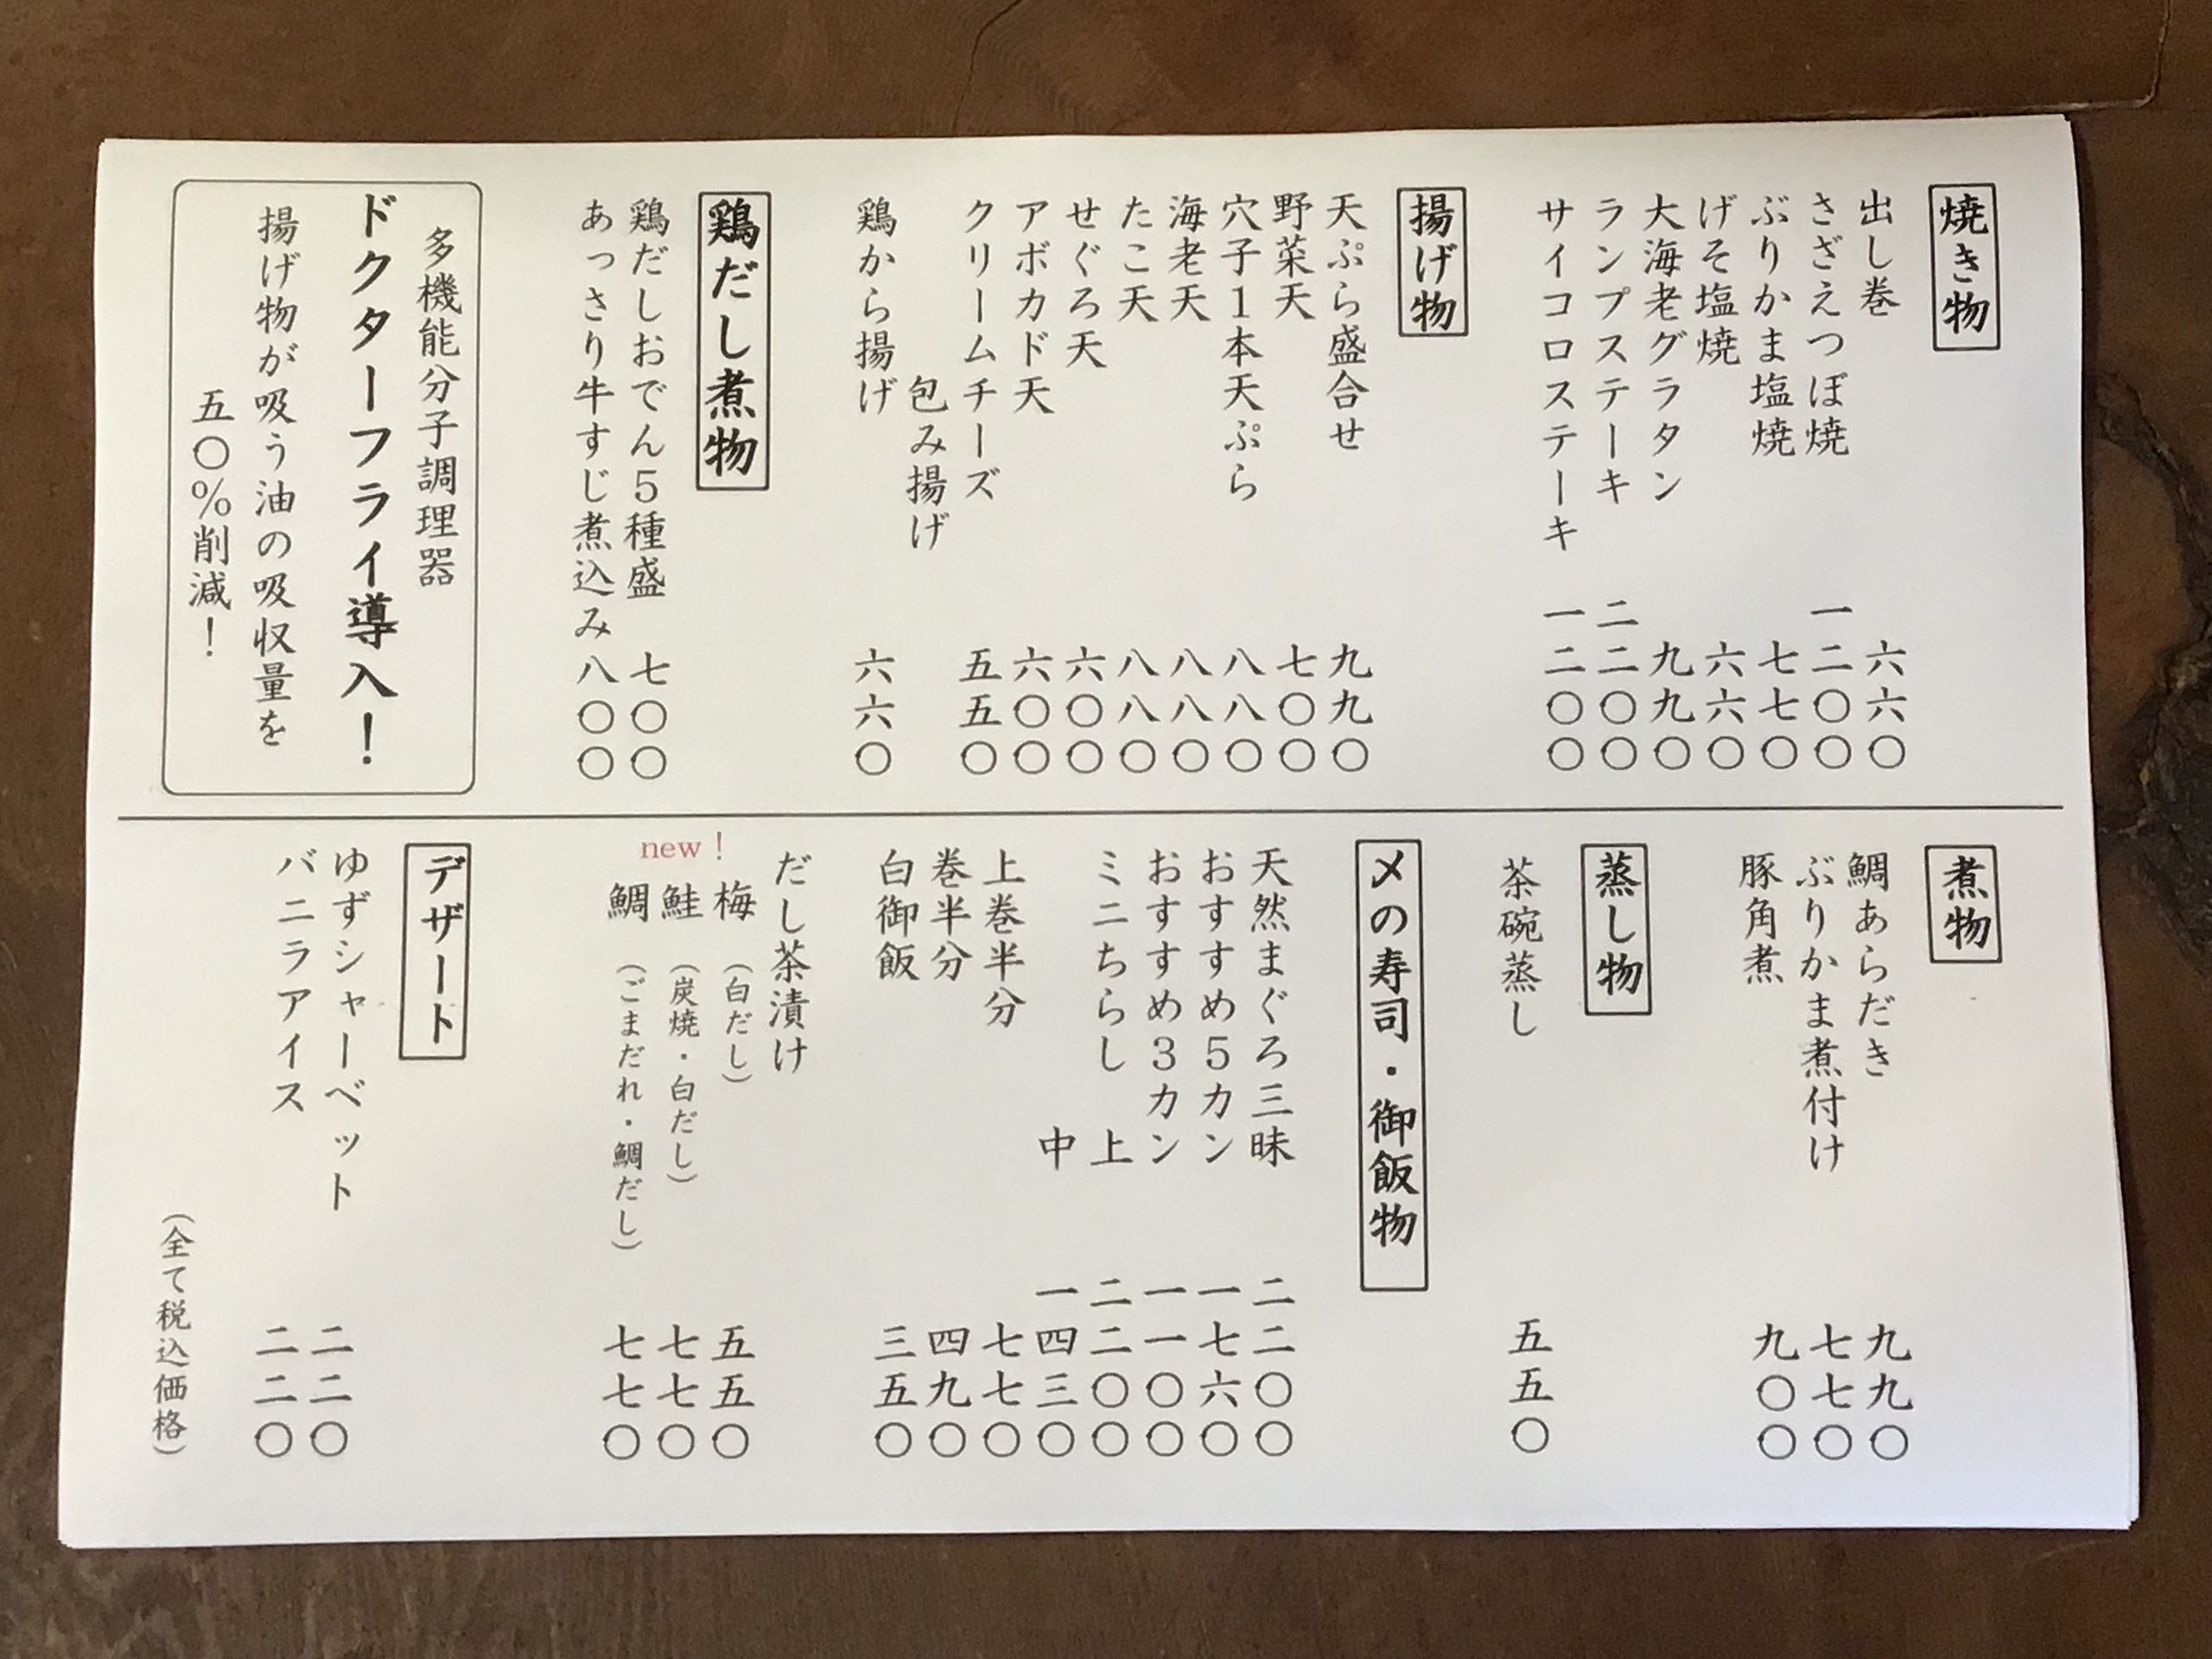 焼き物
出し巻 六六〇
さざえつぼ焼 一二〇〇
ぶりかま塩焼 七七〇
げそ塩焼 六六〇
大海老グラタン 九九〇
ランプステーキ 二二〇〇
サイコロステーキ 一二〇〇
揚げ物
天ぷら盛合せ 九九〇
野菜天 七〇〇
穴子1本天ぷら 八八〇
海老天 八八〇
たこ天 八八〇
せぐろ天 六〇〇
アボカド天 六〇〇
クリームチーズ 五五〇
包み揚げ
鶏から揚げ 六六〇
鶏だし煮物
鶏だしおでん5種盛 七〇〇
あっさり牛すじ煮込み 八〇〇
多機能分子調理器
ドクターフライ導入！
揚げ物が吸う油の吸収量を
五〇％削減！
煮物
鯛あらだき 九九〇
ぶりかま煮付け 七七〇
豚角煮 九〇〇
蒸し物
茶碗蒸し 五五〇
〆の寿司・御飯物
天然まぐろ三昧 二二〇〇
おすすめ5カン 一七六〇
おすすめ3カン 一一〇〇
ミニちらし 上 二二〇〇
中 一四三〇
上巻半分 七七〇
巻半分 四九〇
白御飯 三五〇
だし茶漬け
new！
梅（白だし） 五五〇
鮭（炭焼・白だし） 七七〇
鯛（ごまだれ・鯛だし） 七七〇
デザート
ゆずシャーベット 二二〇
バニラアイス 二二〇
（全て税込価格）